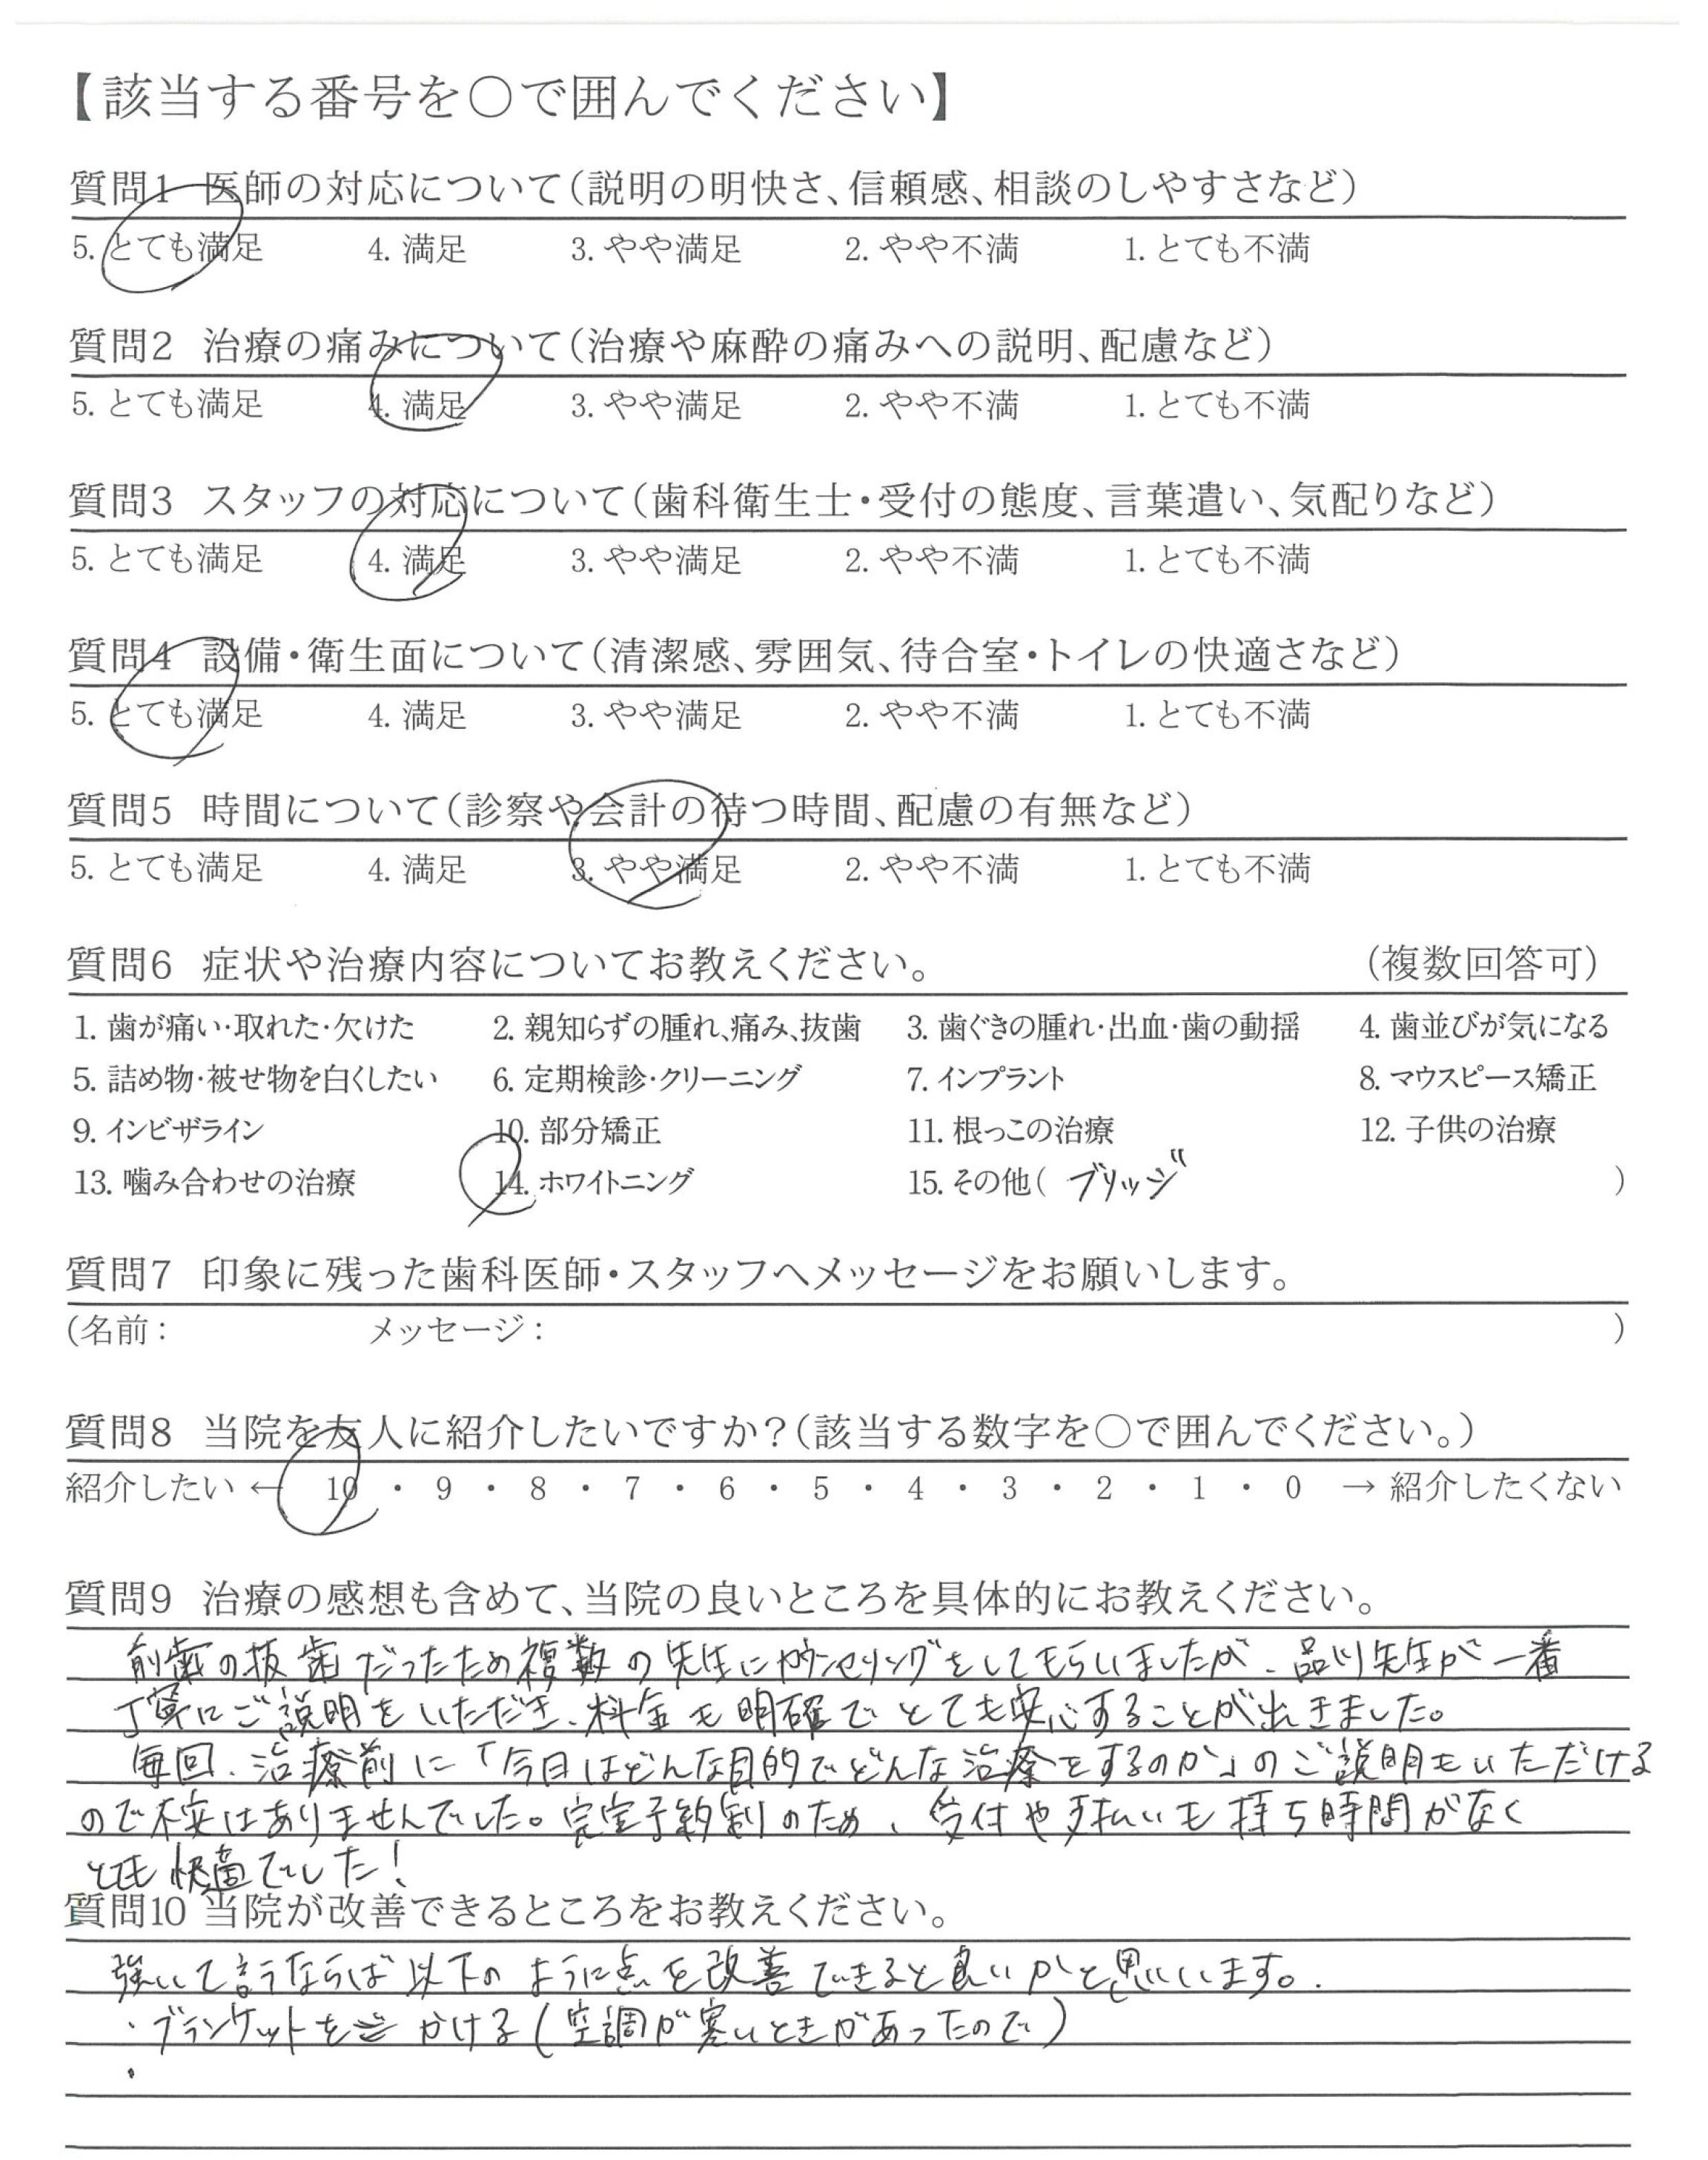 【該当する番号を○で囲んでください】
質問1 医師の対応について（説明の明快さ、信頼感、相談のしやすさなど）
5. とても満足 4. 満足 3. やや満足 2. やや不満 1. とても不満
質問2 治療の痛みについて（治療や麻酔の痛みへの説明、配慮など）
5. とても満足 4. 満足 3. やや満足 2. やや不満 1. とても不満
質問3 スタッフの対応について（歯科衛生士・受付の態度、言葉遣い、気配りなど）
5. とても満足 4. 満足 3. やや満足 2. やや不満 1. とても不満
質問4 設備・衛生面について（清潔感、雰囲気、待合室・トイレの快適さなど）
5. とても満足 4. 満足 3. やや満足 2. やや不満 1. とても不満
質問5 時間について（診察や会計の待つ時間、配慮の有無など）
5. とても満足 4. 満足 3. やや満足 2. やや不満 1. とても不満
質問6 症状や治療内容についてお教えください。 （複数回答可）
1. 歯が痛い・取れた・欠けた 2. 親知らずの腫れ、痛み、抜歯 3. 歯ぐきの腫れ・出血・歯の動揺 4. 歯並びが気になる
5. 詰め物・被せ物を白くしたい 6. 定期検診・クリーニング 7. インプラント 8. マウスピース矯正
9. インビザライン 10. 部分矯正 11. 根っこの治療 12. 子供の治療
13. 噛み合わせの治療 14. ホワイトニング 15. その他（ ブリッジ ）
質問7 印象に残った歯科医師・スタッフへメッセージをお願いします。
（名前： メッセージ： ）
質問8 当院を友人に紹介したいですか？（該当する数字を○で囲んでください。）
紹介したい ← 10 ・ 9 ・ 8 ・ 7 ・ 6 ・ 5 ・ 4 ・ 3 ・ 2 ・ 1 ・ 0 → 紹介したくない
質問9 治療の感想も含めて、当院の良いところを具体的にお教えください。
前歯の抜歯だったため複数の先生にカウンセリングをしてもらいましたが、品川先生が一番
丁寧にご説明をいただき、料金も明確でとても安心することが出きました。
毎回、治療前に「今日はどんな目的でどんな治療をするのか」のご説明もいただける
ので不安はありませんでした。完全予約制のため、受付や支払いも持ち時間がなく
とても快適でした！
質問10 当院が改善できるところをお教えください。
強いて言うならば以下のように点を改善できると良いかと思いいます。
・ブランケットを かける（空調が寒いときがあったので）
・